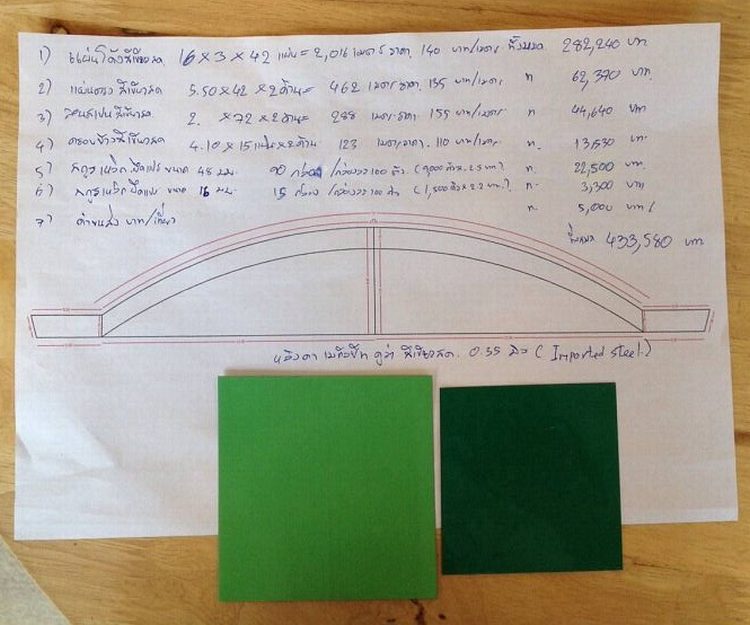 1) แผ่นโค้งสีเขียวสด 16 x 3 x 42 แผ่น = 2,016 เมตร ราคา 140 บาท/เมตร ทั้งหมด 282,240 บาท
2) แผ่นตรง สีเขียวสด 5.50 x 42 x 2 ด้าน = 462 เมตร ราคา 135 บาท/เมตร " 62,370 บาท.
3) สีเขียวสด 2. x 72 x 2 ด้าน = 288 เมตร ราคา 155 บาท/เมตร " 44,640 บาท.
4) ครอบข้างสีเขียวสด 4.10 x 15 x 2 ด้าน 123 เมตร ราคา. 110 บาท/เมตร " 13,530 บาท.
5) สกรู ยึดแป ขนาด 45 มม. 90 กล่อง / กล่องละ 100 ตัว (9,000 ตัว x 2.5 บาท.) " 22,500 บาท.
6) สกรู ยึดแป ขนาด 16 มม. 15 กล่อง / กล่องละ 100 ตัว (1,500 ตัว x 2.2 บาท.) " 3,300 บาท
7) ค่าขนส่ง บาท/เที่ยว " 5,000 บาท
ทั้งหมด 433,580 บาท
สีเขียวสด. 0.35 มิล (Imported steel.)